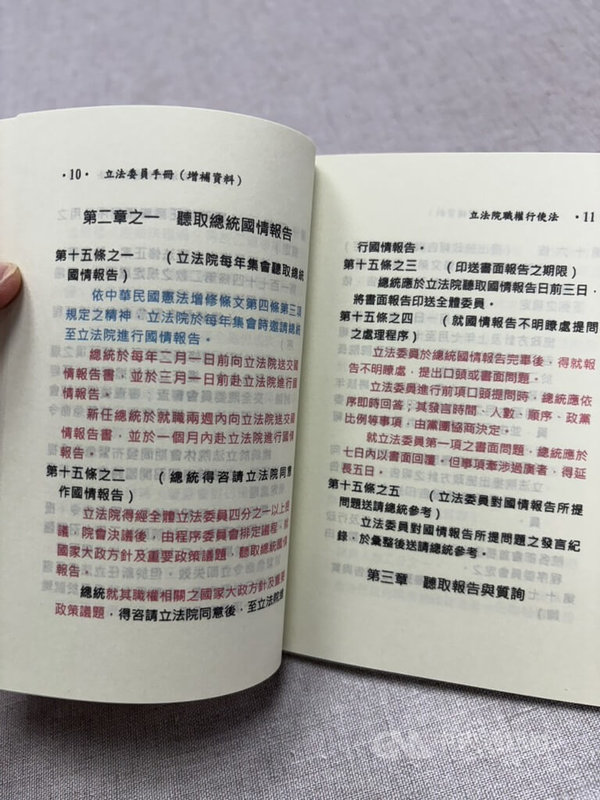 ·10· 立法委員手冊（增補資料）
第二章之一 聽取總統國情報告
第十五條之一 （立法院每年集會聽取總統
國情報告）
依中華民國憲法增修條文第四條第三項
規定之精神，立法院於每年集會時邀請總統
至立法院進行國情報告。
總統於每年二月一日前向立法院送交國
情報告書，並於三月一日前赴立法院進行國
情報告。
新任總統於就職兩週內向立法院送交國
情報告書，並於一個月內赴立法院進行國情
報告。
第十五條之二 （總統得咨請立法院同意
作國情報告）
立法院得經全體立法委員四分之一以上提
議，院會決議後，由程序委員會排定議程，就
國家大政方針及重要政策議題，聽取總統國情
報告。
總統就其職權相關之國家大政方針及重要
政策議題，得咨請立法院同意後，至立法院進
立法院職權行使法 11
行國情報告。
第十五條之三 （印送書面報告之期限）
總統應於立法院聽取國情報告日前三日，
將書面報告印送全體委員。
第十五條之四 （就國情報告不明瞭處提問
之處理程序）
立法委員於總統國情報告完畢後，得就報
告不明瞭處，提出口頭或書面問題。
立法委員進行前項口頭提問時，總統應依
序即時回答；其發言時間、人數、順序、政黨
比例等事項，由黨團協商決定。
就立法委員第一項之書面問題，總統應於
七日內以書面回覆。但事項牽涉過廣者，得延
長五日。
第十五條之五 （立法委員對國情報告所提
問題送請總統參考）
立法委員對國情報告所提問題之發言紀
錄，於彙整後送請總統參考。
第三章 聽取報告與質詢